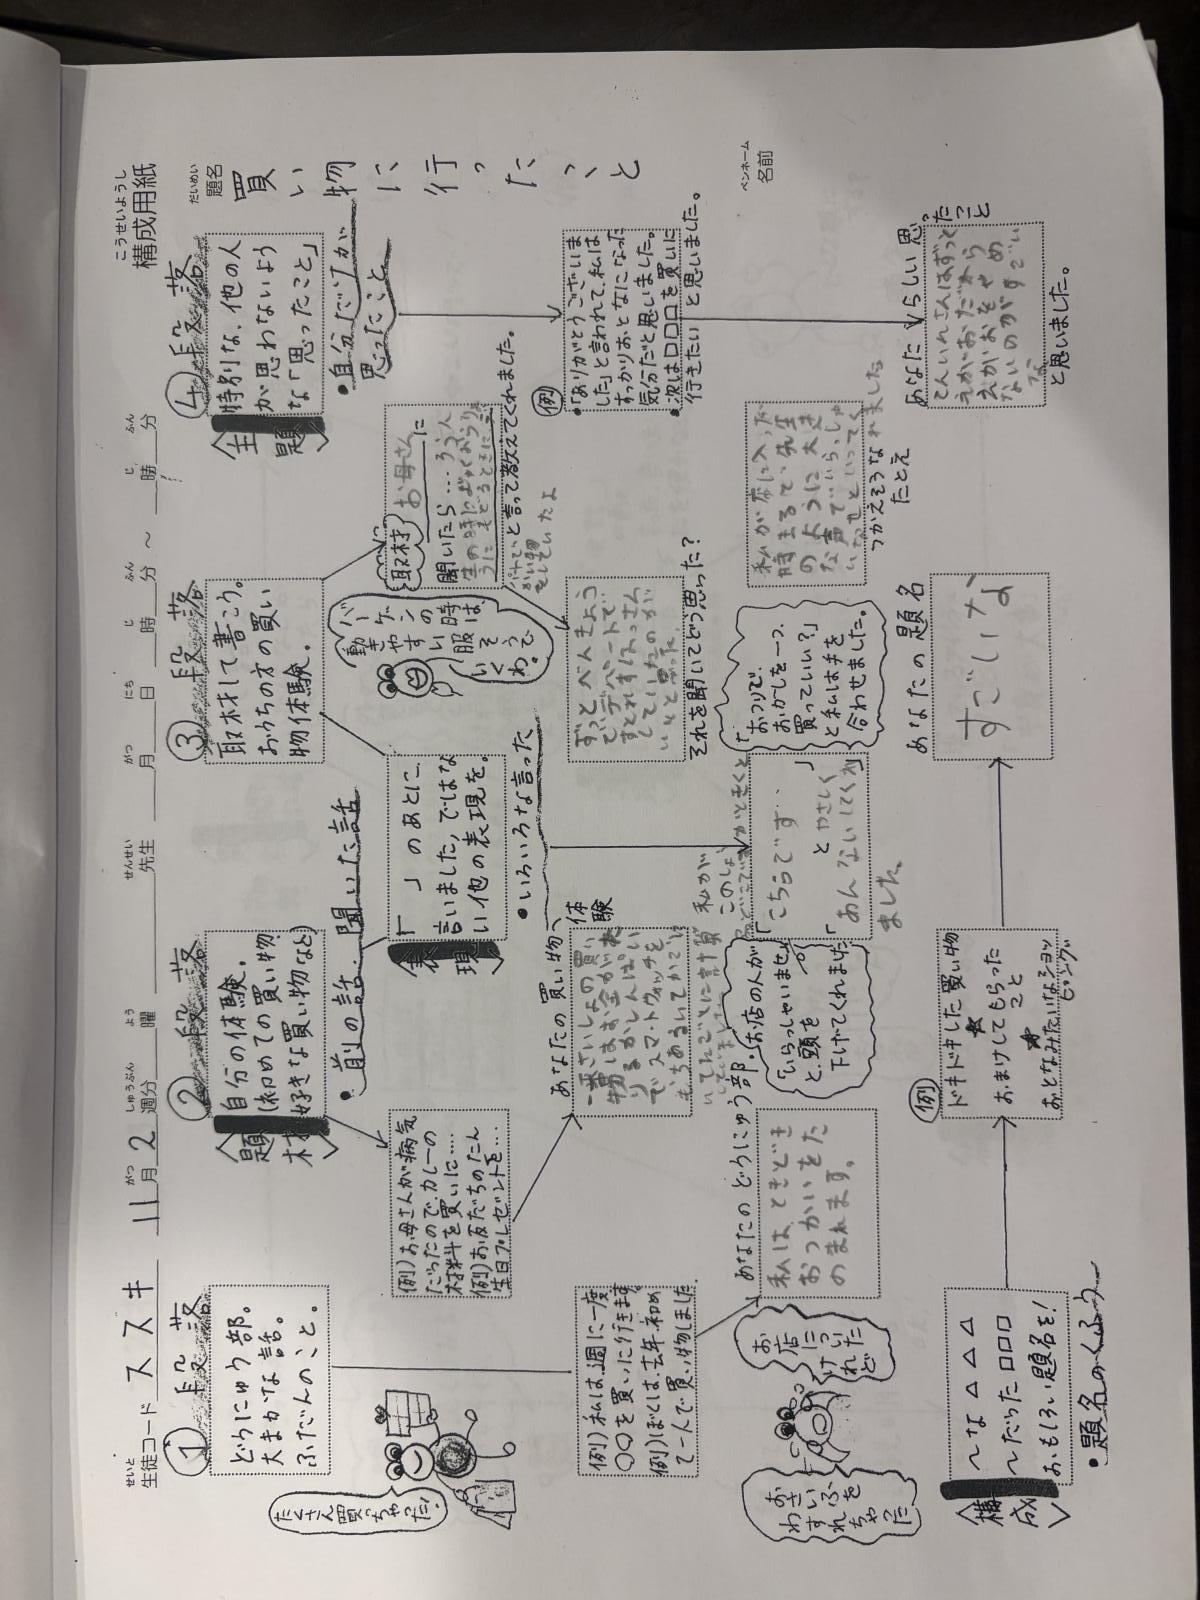 構成用紙
こうせいようし
生徒コード ススキ 11月2週分 曜 先生 月 日 時 分 ~ 時 分
せいと がつ しゅうぶん よう せんせい がつ にち じ ふん じ ふん
題名
だいめい
買い物に行ったこと
名前
ペンネーム
①段落
どうにゅう部。
大まかな話。
ふだんのこと。
たくさん買っちゃった!
例)私は、週に一度
〇〇を買いに行きます
例)ぼくは、去年、初め
て一人で買い物しました
おさいふを
わすれちゃった
お店についたけれど
あなたのどうにゅう部
私は、ときどき
おつかいをた
のまれます。
②段落
〈題材〉
自分の体験。
(初めての買い物
好きな買い物など)
例)お母さんが病気
だったので、カレーの
材料を買いに‥‥
例)お友だちのたん
生日プレゼントを…
あなたの買い物体験
一番さいしょの買い
物はお金がた
りるかしんぱい
でスマートウォッチを
もちあるいてかごに
いれてごとに計算
していました。
・前の話、聞いた話
〈表現〉
「 」のあとに、
言いました,ではな
い他の表現を。
・いろいろな言った
・お店の人が
「いらっしゃいませ」
と、頭を
下げてくれました
私が
「こちらです‥」
とやさしく
あんないしてくれ
ました。
「おつりで、
おかしを一つ、
買っていい?」
と私は手を
合わせました。
③段落
取材して書こう。
おうちの方の買い
物体験。
バーゲンの時は、
動きやすい服
そうで
いくわ。
取材
お母さんに
聞いたら‥‥
と言って教えてくれました。
それを聞いてどう思った?
私が店に入った
時まるで、先生
のように大き
な声でいらっしゃ
いませといってく
れました
つかえそうな
たとえ
④段落
〈主題〉
特別な、他の人
が思わないよう
な「思ったこと」
・自分だけが
思ったこと
例
・「ありがとうございま
した」と言われて、私は
すっかりおとなになった
気分だと思いました。
・次は□□□を買いに
行きたいと思いました。
あなたらしい思ったこと
てんいんさんはずっと
えがおだから
えがおをやめ
ないのがすごい
な
と思いました。
〈構成〉
〜な△△△
〜だった□□□
おもしろい題名を!
・題名のくふう
例
ドキドキした買い物
おまけしてもらった
こと
おとなみたいなショッ
ピング
あなたの題名
すごいな